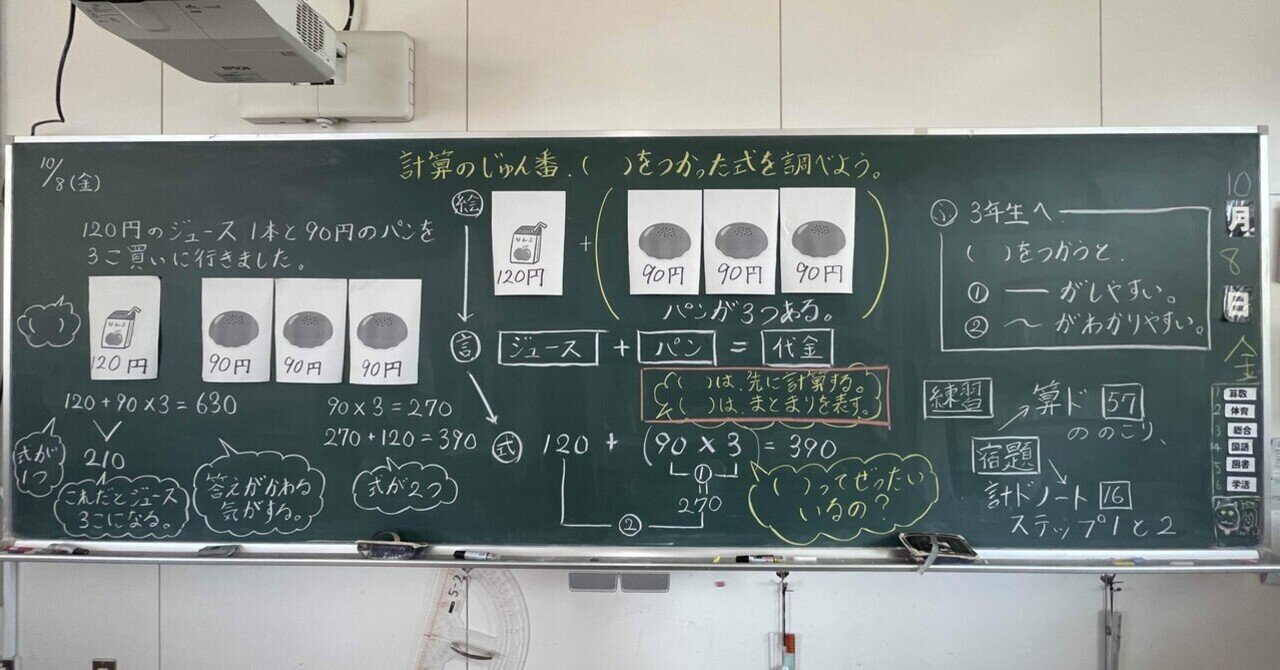 EPSON
10/8(金)
計算のじゅん番、( )をつかった式を調べよう。
120円のジュース1本と90円のパンを
3こ買いに行きました。
( )
りんご
120円
90円
90円
90円
120+90×3=630
210
式が
1つ
これだとジュース
3こになる。
90×3=270
270+120=390
答えがかわる
気がする。
式が2つ
絵
りんご
120円
+
( 90円 90円 90円 )
パンが3つある。
言
ジュース + パン = 代金
( )は、先に計算する。
( )は、まとまりを表す。
式
120+(90×3)=390
①
270
②
( )ってぜったい
いるの?
3年生へ
( )をつかうと、
① ー がしやすい。
② 〜 がわかりやすい。
練習
算ド 57
ののこり、
宿題
計ドノート 16
ステップ1と2
10
月
8
日
金
1 算数
2 体育
3 総合
4 国語
5 図書
6 学活